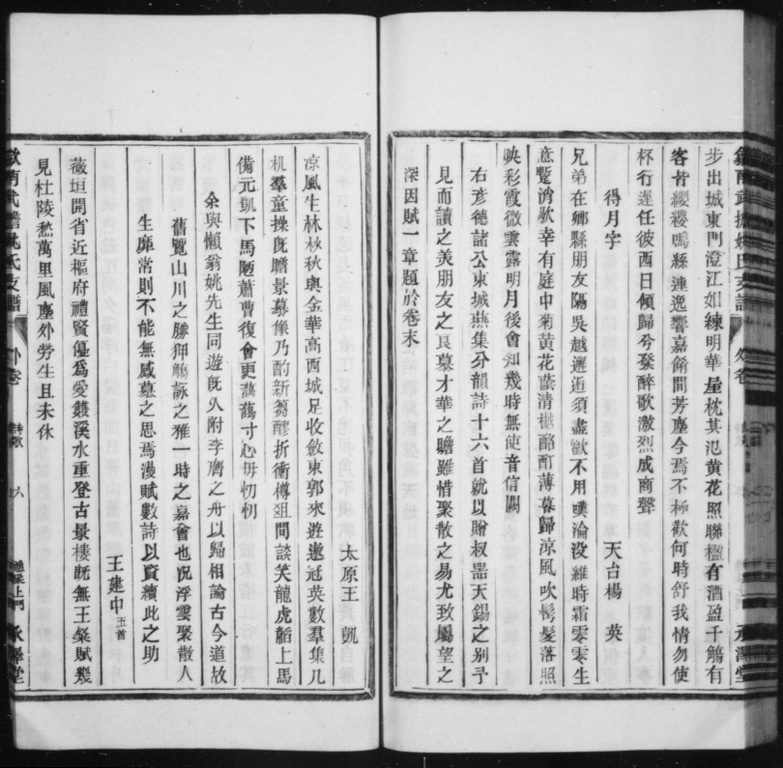 步出城東門澄江如練明華星枕其氾黄花照聯楹有酒盈千觴有
客皆纓纓鳴縣連逸響嘉餚間芳塵今焉不極歡何時舒我情勿使
杯行遲任彼西日傾歸兮發醉歌激烈成南聲
得月字
天台楊 英
兄弟在鄉縣朋友隔吳越邂逅須盡歡不用嘆淪没維時霜零零生
意蹔消歇幸有庭中菊黄花蔭清樾酩酊薄暮歸凉風吹鬂髪落照
映彩霞微雲露明月後會知幾時無使音信闕
右彦德諸公東城燕集分韻詩十六首就以贈叔器天錫之别予
見而讀之美朋友之良慕才華之贍雖惜聚散之易尤致屬望之
深因賦一章題於卷末
太原王 凱
凉風生林樾秋輿金華高西城足收斂東郭來遊遨冠英數羣集几
机羣童操旣瞻景慕像乃酌新蒭醪折衝樽俎間談笑龍虎韜上馬
備元凱下馬陋蕭曹復會更蔼蔼寸心毋忉忉
余與懶翁姚先生同遊旣久附李膺之舟以歸相論古今道故
舊覽山川之勝狎觴詠之雅一時之嘉會也况浮雲聚散人
生靡常則不能無感慕之思焉漫賦數詩以資續此之助
王建中五首
薇垣開省近樞府禮賢優爲愛鑊溪水重登古景樓旣無王粲賦幾
見杜陵愁萬里風塵外勞生且未休
外卷
承澤堂